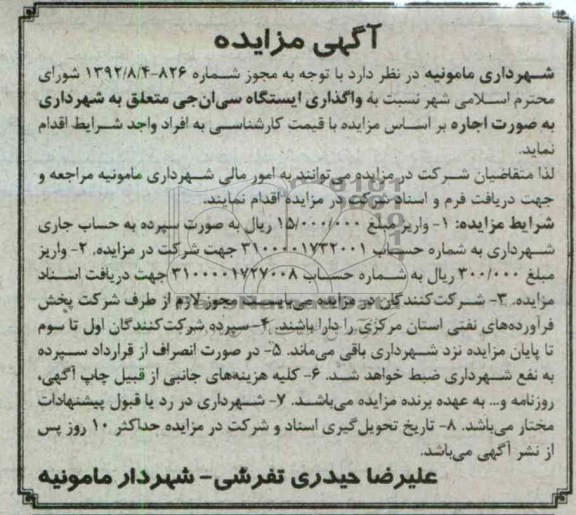 آگهی مزایده
شهرداری مامونیه در نظر دارد با توجه به مجوز شماره ۸۲۶-۱۳۹۲/۸/۴ شورای
محترم اسلامی شهر نسبت به واگذاری ایستگاه سی‌ان‌جی متعلق به شهرداری
به صورت اجاره بر اساس مزایده با قیمت کارشناسی به افراد واجد شرایط اقدام
نماید.
لذا متقاضیان شرکت در مزایده می‌توانند به امور مالی شهرداری مامونیه مراجعه و
جهت دریافت فرم و اسناد شرکت در مزایده اقدام نمایند.
شرایط مزایده: ۱- واریز مبلغ ۱۵/۰۰۰/۰۰۰ ریال به صورت سپرده به حساب جاری
شهرداری به شماره حساب ۳۱۰۰۰۰۱۷۳۲۰۰۱ جهت شرکت در مزایده. ۲- واریز
مبلغ ۳۰۰/۰۰۰ ریال به شماره حساب ۳۱۰۰۰۰۱۷۲۷۰۰۸ جهت دریافت اسناد
مزایده. ۳- شرکت‌کنندگان در مزایده می‌بایست مجوز لازم از طرف شرکت پخش
فرآورده‌های نفتی استان مرکزی را دارا باشند. ۴- سپرده شرکت‌کنندگان اول تا سوم
تا پایان مزایده نزد شهرداری باقی می‌ماند. ۵- در صورت انصراف از قرارداد سپرده
به نفع شهرداری ضبط خواهد شد. ۶- کلیه هزینه‌های جانبی از قبیل چاپ آگهی،
روزنامه و... به عهده برنده مزایده می‌باشد. ۷- شهرداری در رد یا قبول پیشنهادات
مختار می‌باشد. ۸- تاریخ تحویل‌گیری اسناد و شرکت در مزایده حداکثر ۱۰ روز پس
از نشر آگهی می‌باشد.
علیرضا حیدری تفرشی- شهردار مامونیه